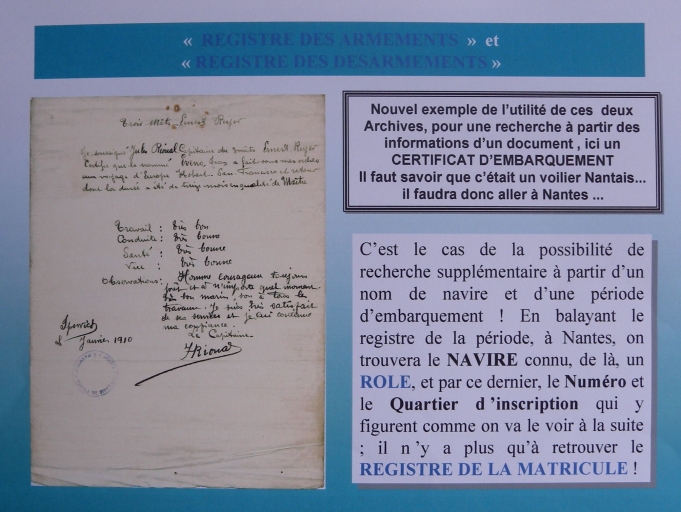 « REGISTRE DES ARMEMENTS » et
« REGISTRE DES DESARMEMENTS »
Trois Mâts Ernest Reyer
Je soussigné Jules Rioual Capitaine du trois mâts Ernest Reyer
Certifie que le nommé a fait sous mes ordres
un voyage d'Europe Hobart San Francisco et retour
dont la durée a été de treize mois en qualité de Maître
Travail : très bon
Conduite : très bonne
Santé : très bonne
Vue : très bonne
Observations : Homme courageux toujours
prêt et à n'importe quel moment
très bon marin, bon à tous les
travaux. Je suis très satisfait
de ses services et
ma confiance.
Le Capitaine
Ipswich
8 Janvier 1910
JRioual
Nouvel exemple de l'utilité de ces deux
Archives, pour une recherche à partir des
informations d'un document , ici un
CERTIFICAT D'EMBARQUEMENT
Il faut savoir que c'était un voilier Nantais...
il faudra donc aller à Nantes ...
C'est le cas de la possibilité de
recherche supplémentaire à partir d'un
nom de navire et d'une période
d'embarquement ! En balayant le
registre de la période, à Nantes, on
trouvera le NAVIRE connu, de là, un
ROLE, et par ce dernier, le Numéro et
le Quartier d 'inscription qui y
figurent comme on va le voir à la suite
; il n 'y a plus qu'à retrouver le
REGISTRE DE LA MATRICULE !